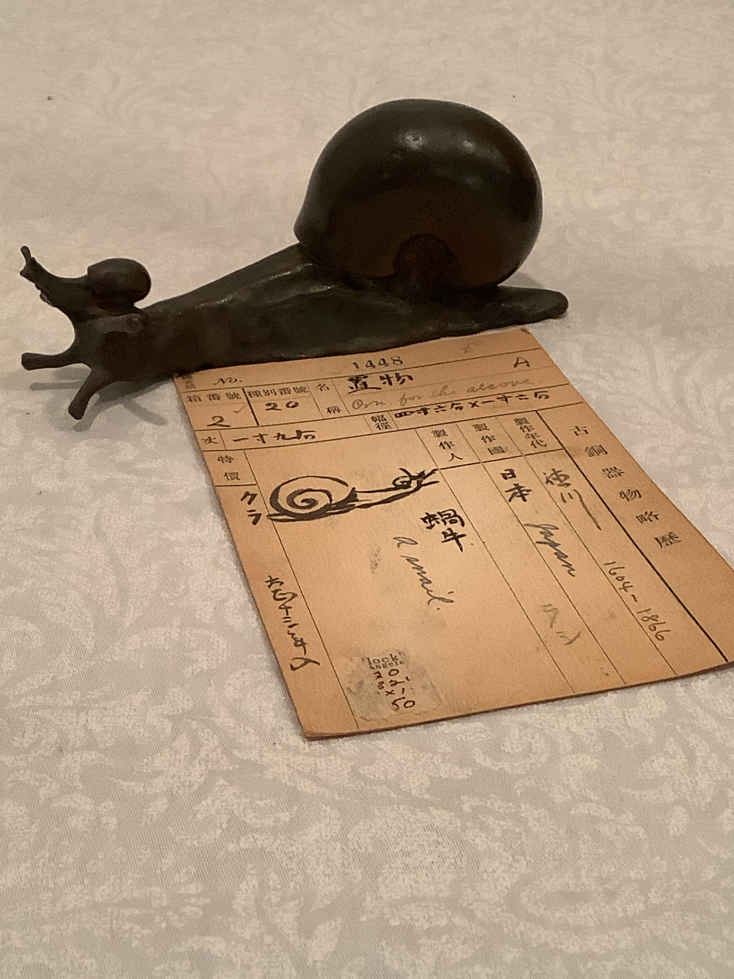 No. 1448 A
箱番號 2 種別番號 20 名稱 置物
Orn for the alcove
幅徑 四寸六分×一寸二分
丈 一寸九分
特價
製作人
製作國 日本 Japan
製作年代 徳川 1604-1866
古銅器物略歷
クラ
蝸牛
a snail.